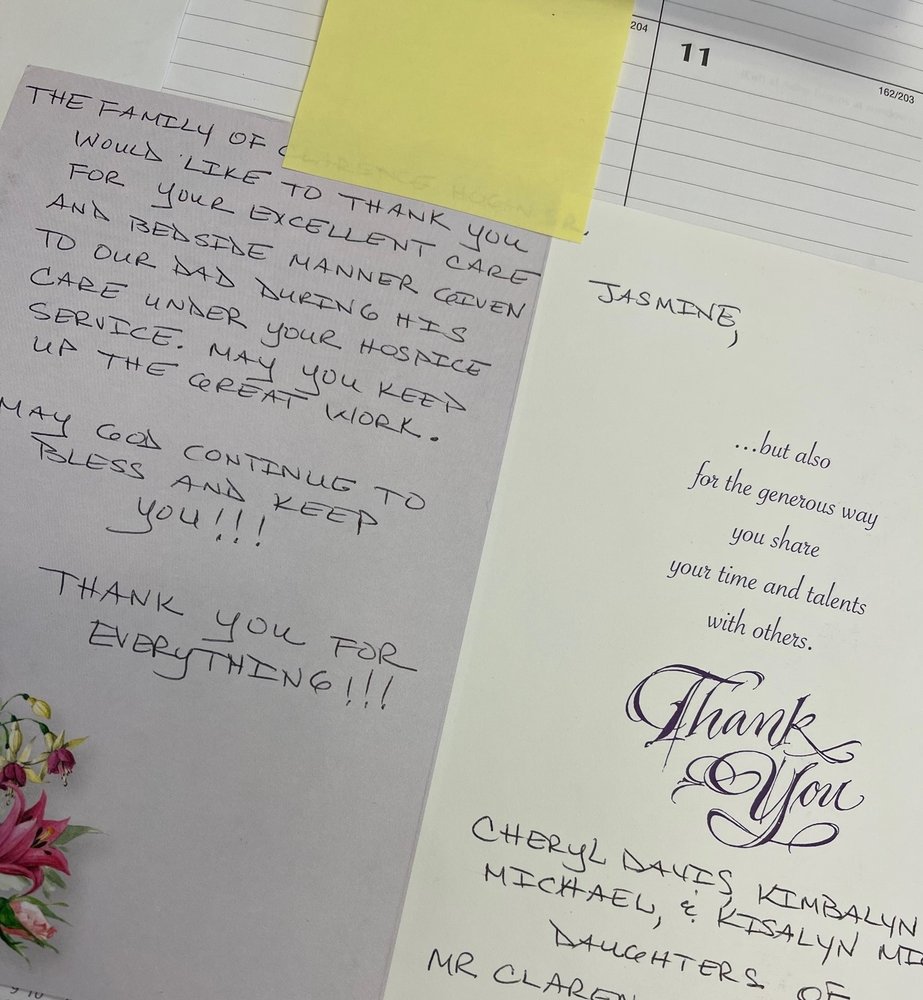 204
11
162/203
THE FAMILY OF
WOULD LIKE TO THANK YOU
FOR YOUR EXCELLENT CARE
AND BEDSIDE MANNER GIVEN
TO OUR DAD DURING HIS
CARE UNDER YOUR HOSPICE
SERVICE. MAY YOU KEEP
UP THE GREAT WORK.
MAY GOD CONTINUE TO
BLESS AND KEEP
YOU!!!
THANK YOU FOR
EVERYTHING!!!
JASMINE,
...but also
for the generous way
you share
your time and talents
with others.
Thank
You
CHERYL DAVIS, KIMBALYN
MICHAEL, & KISALYN MI
DAUGHTERS OF
MR CLAREN